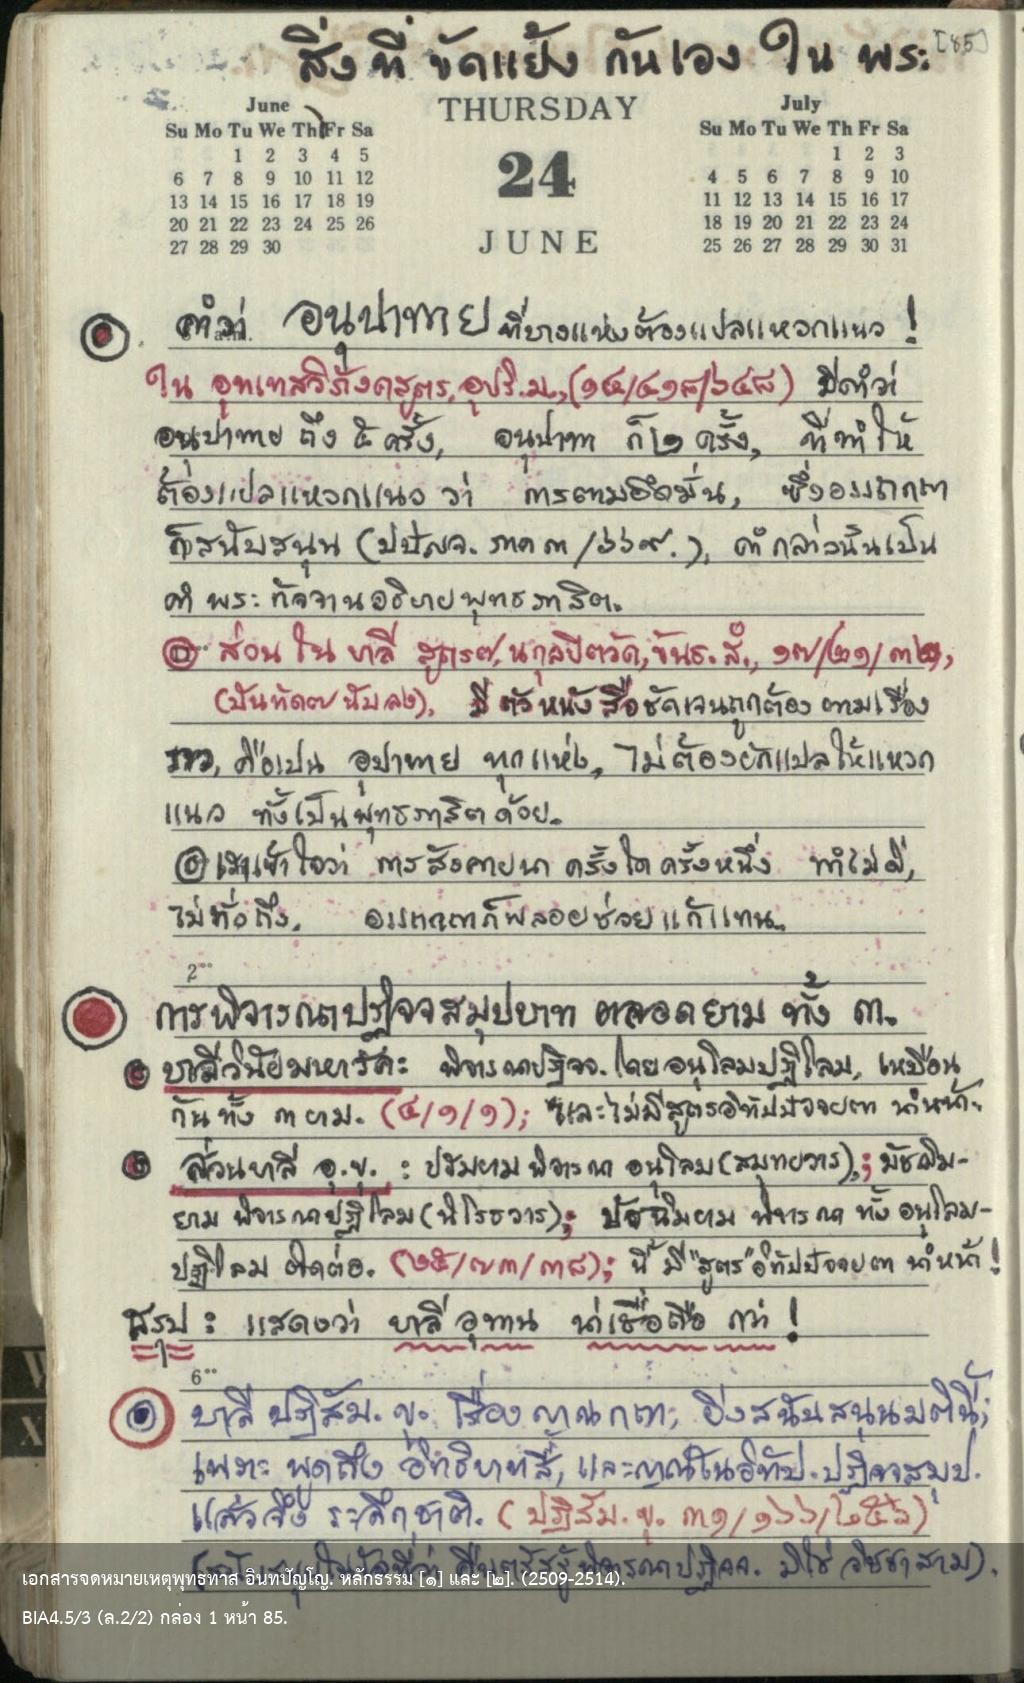 สิ่งที่ ขัดแย้ง กันเอง ใน พระ [85]
June
Su Mo Tu We Th Fr Sa
1 2 3 4 5
6 7 8 9 10 11 12
13 14 15 16 17 18 19
20 21 22 23 24 25 26
27 28 29 30
THURSDAY
24
JUNE
July
Su Mo Tu We Th Fr Sa
1 2 3
4 5 6 7 8 9 10
11 12 13 14 15 16 17
18 19 20 21 22 23 24
25 26 27 28 29 30 31
คำว่า อนุปาทาย ที่บางแห่งต้องแปลแหวกแนว !
ใน อุทเทสวิภังคสูตร, อุปริ.ม., (๑๔/๔๑๘/๖๔๘) มีคำว่า
อนุปาทาย ถึง ๕ ครั้ง, อนุปาทา ก็ ๒ ครั้ง, ที่ทำให้
ต้องแปลแหวกแนว ว่า การตามยึดมั่น, ซึ่งอรรถกถา
ก็สนับสนุน (ปปัญจ. ภาค ๓ /๖๖๙.), คำกล่าวนั้นเป็น
คำ พระกัจจานอธิบายพุทธภาสิต.
ส่วน ใน บาลี สูตร๗, นกุลปิตวัค, ขันธ. สํ., ๑๗/๒๑/๓๒,
(บันทัด๗ นับลง), มี ตัวหนังสือชัดเจนถูกต้อง ตามเรื่อง
ราว, คือเปน อุปาทาย ทุกแห่ง, ไม่ต้องยักแปลให้แหวก
แนว ทั้งเป็นพุทธภาสิตด้วย.
เข้าใจว่า การสังคายนา ครั้งใดครั้งหนึ่ง ทำไม่ดี,
ไม่ทั่วถึง. อรรถกถาก็พลอยช่วยแก้แทน.
2°°
การพิจารณาปฏิจจสมุปบาท ตลอดยาม ทั้ง ๓.
บาลีวินัยมหาวัค: พิจารณาปฏิจจ. โดย อนุโลมปฏิโลม, เหมือน
กันทั้ง ๓ ยาม. (๔/๑/๑); และไม่มีสูตรอิทัปปัจจยตา นำหน้า.
ส่วนบาลี อุ.ขุ. : ปฐมยาม พิจารณา อนุโลม (สมุทยวาร); มัชฌิม-
ยาม พิจารณาปฏิโลม (นิโรธวาร); ปัจฉิมยาม พิจารณา ทั้ง อนุโลม-
ปฏิโลม ติดต่อ. (๒๕/๗๓/๓๘); นี้ มี "สูตร" อิทัปปัจจยตา นำหน้า !
สรุป : แสดงว่า บาลี อุทาน น่าเชื่อถือ กว่า !
6°°
บาลี ปฏิสัม. ขุ. เรื่อง ญาณกถา, ยิ่งสนับสนุนมตินี้;
เพราะ พูดถึง อิทธิบาทสี่, และญาณในอิทัป. ปฏิจจสมุป.
แล้วจึง ระลึกชาติ. (ปฏิสัม. ขุ. ๓๑/๑๖๖/๒๕๖)
คืนตรัสรู้พิจารณาปฏิจจ. มิใช่ วิชชาสาม).
เอกสารจดหมายเหตุพุทธทาส อินทปัญโญ. หลักธรรม [๑] และ [๒]. (2509-2514).
BIA4.5/3 (ล.2/2) กล่อง 1 หน้า 85.